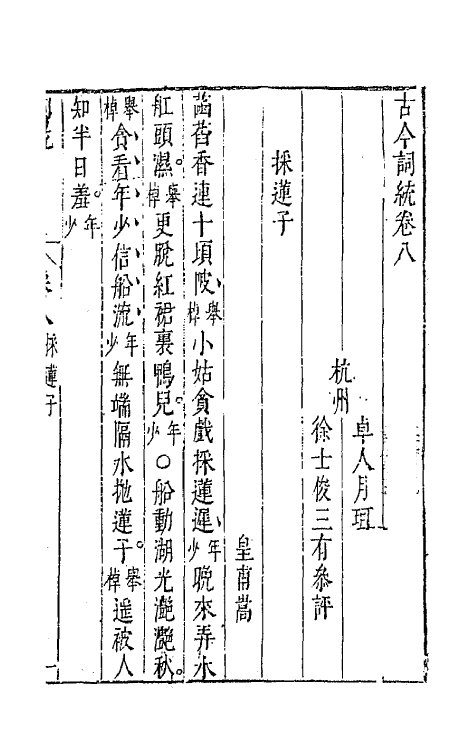 古今詞統卷八
杭州
卓人月珂
徐士俊三有叅評
採蓮子
皇甫嵩
菡萏香連十頃陂舉棹小姑貪戲採蓮遲年少晩來弄水
舡頭濕舉棹更脫紅裙裹鴨兒年少○船動湖光灔灔秋
舉棹貪看年少信船流年少無端隔水抛蓮子舉棹遥被人
知半日羞年少
卷八 採蓮子 一